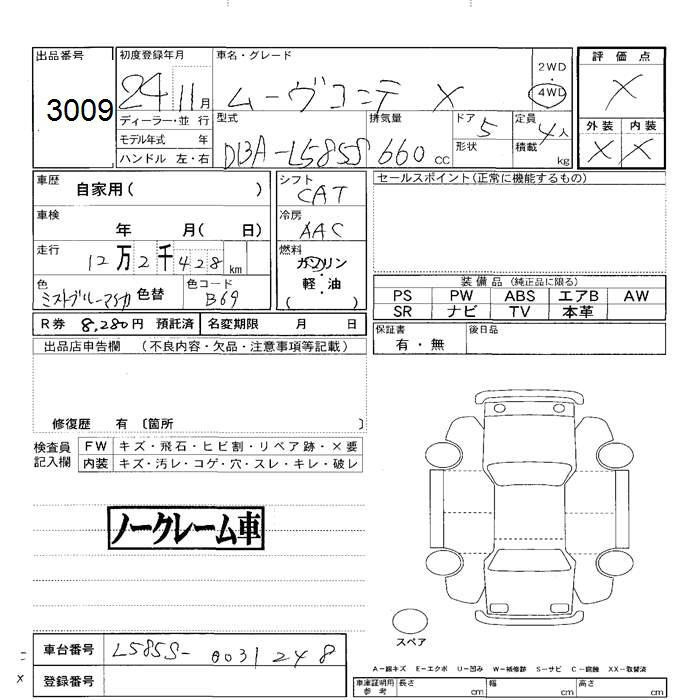 出品番号
3009
初度登録年月
24 11月
車名・グレード
ムーヴコンテ X
2WD
4WD
評価点
X
外装 内装
X X
ディーラー・並行
モデル年式 年
ハンドル 左・右
型式
DBA-L585S
排気量
660 cc
ドア 5
形状
定員 4人
積載 kg
車歴 自家用( )
車検
年 月( 日)
走行
12万2千428km
シフト
CAT
冷房
AAC
燃料
ガソリン
軽・油
( )
セールスポイント(正常に機能するもの)
色
ミストブルーマイカ 色替
色コード
B69
装備品(純正品に限る)
PS PW ABS エアB AW
SR ナビ TV 本革
R券 8,280円 預託済 名変期限 月 日
保証書
有・無
後日品
出品店申告欄 (不良内容・欠品・注意事項等記載)
修復歴 有 〔箇所 〕
検査員
記入欄
FW キズ・飛石・ヒビ割・リペア跡・×要
内装 キズ・汚レ・コゲ・穴・スレ・キレ・破レ
ノークレーム車
スペア
車台番号 L585S-0031248
登録番号
A-線キズ E-エクボ U-凹み W-補修跡 S-サビ C-腐蝕 XX-取替済
車庫証明用
参考
長さ cm 幅 cm 高さ cm